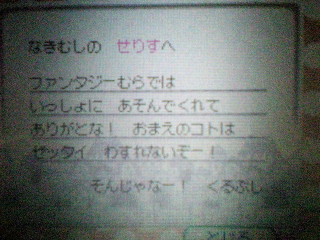 なきむしの せりすへ
ファンタジーむらでは
いっしょに あそんでくれて
ありがとな! おまえのコトは
ゼッタイ わすれないぞー!
そんじゃなー! くるぶし
とじる